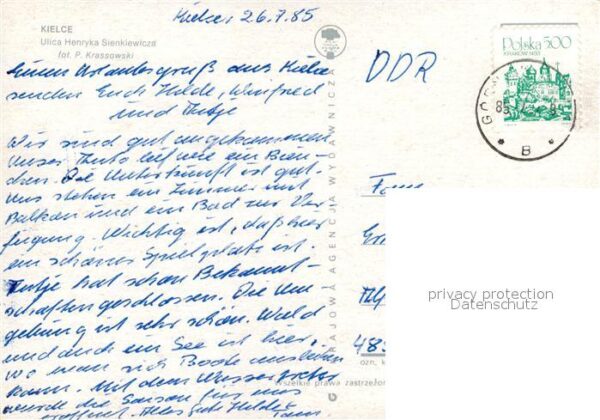 Kielce, 26.7.85
KIELCE
Ulica Henryka Sienkiewicza
fot. P. Krassowski
Einen Urlaubsgruß aus Kielce
senden Euch Hilde, Winfried
und Antje
Wir sind gut angekommen
Unser Auto lief wie ein Bien-
chen. Die Unterkunft ist gut.
Uns stehen ein Zimmer mit
Balkon und ein Bad zur Ver-
fügung. Wichtig ist, daß hier
ein schöner Spielplatz ist.
Antje hat schon Bekannt-
schaften geschlossen. Die Um-
gebung ist sehr schön. Wald
und auch ein See ist hier,
wo man sich Boote ausleihen
kann. Mit dem Wassertreter
wurde die Saison für uns
eröffnet. Alles gute Hilde
KRAJOWA AGENCJA WYDAWNICZA
Wszelkie prawa zastrzeżon
DDR
Polska 500
KRAKÓW 1493
85
8
Fam
483
ozn. k
privacy protection
Datenschutz